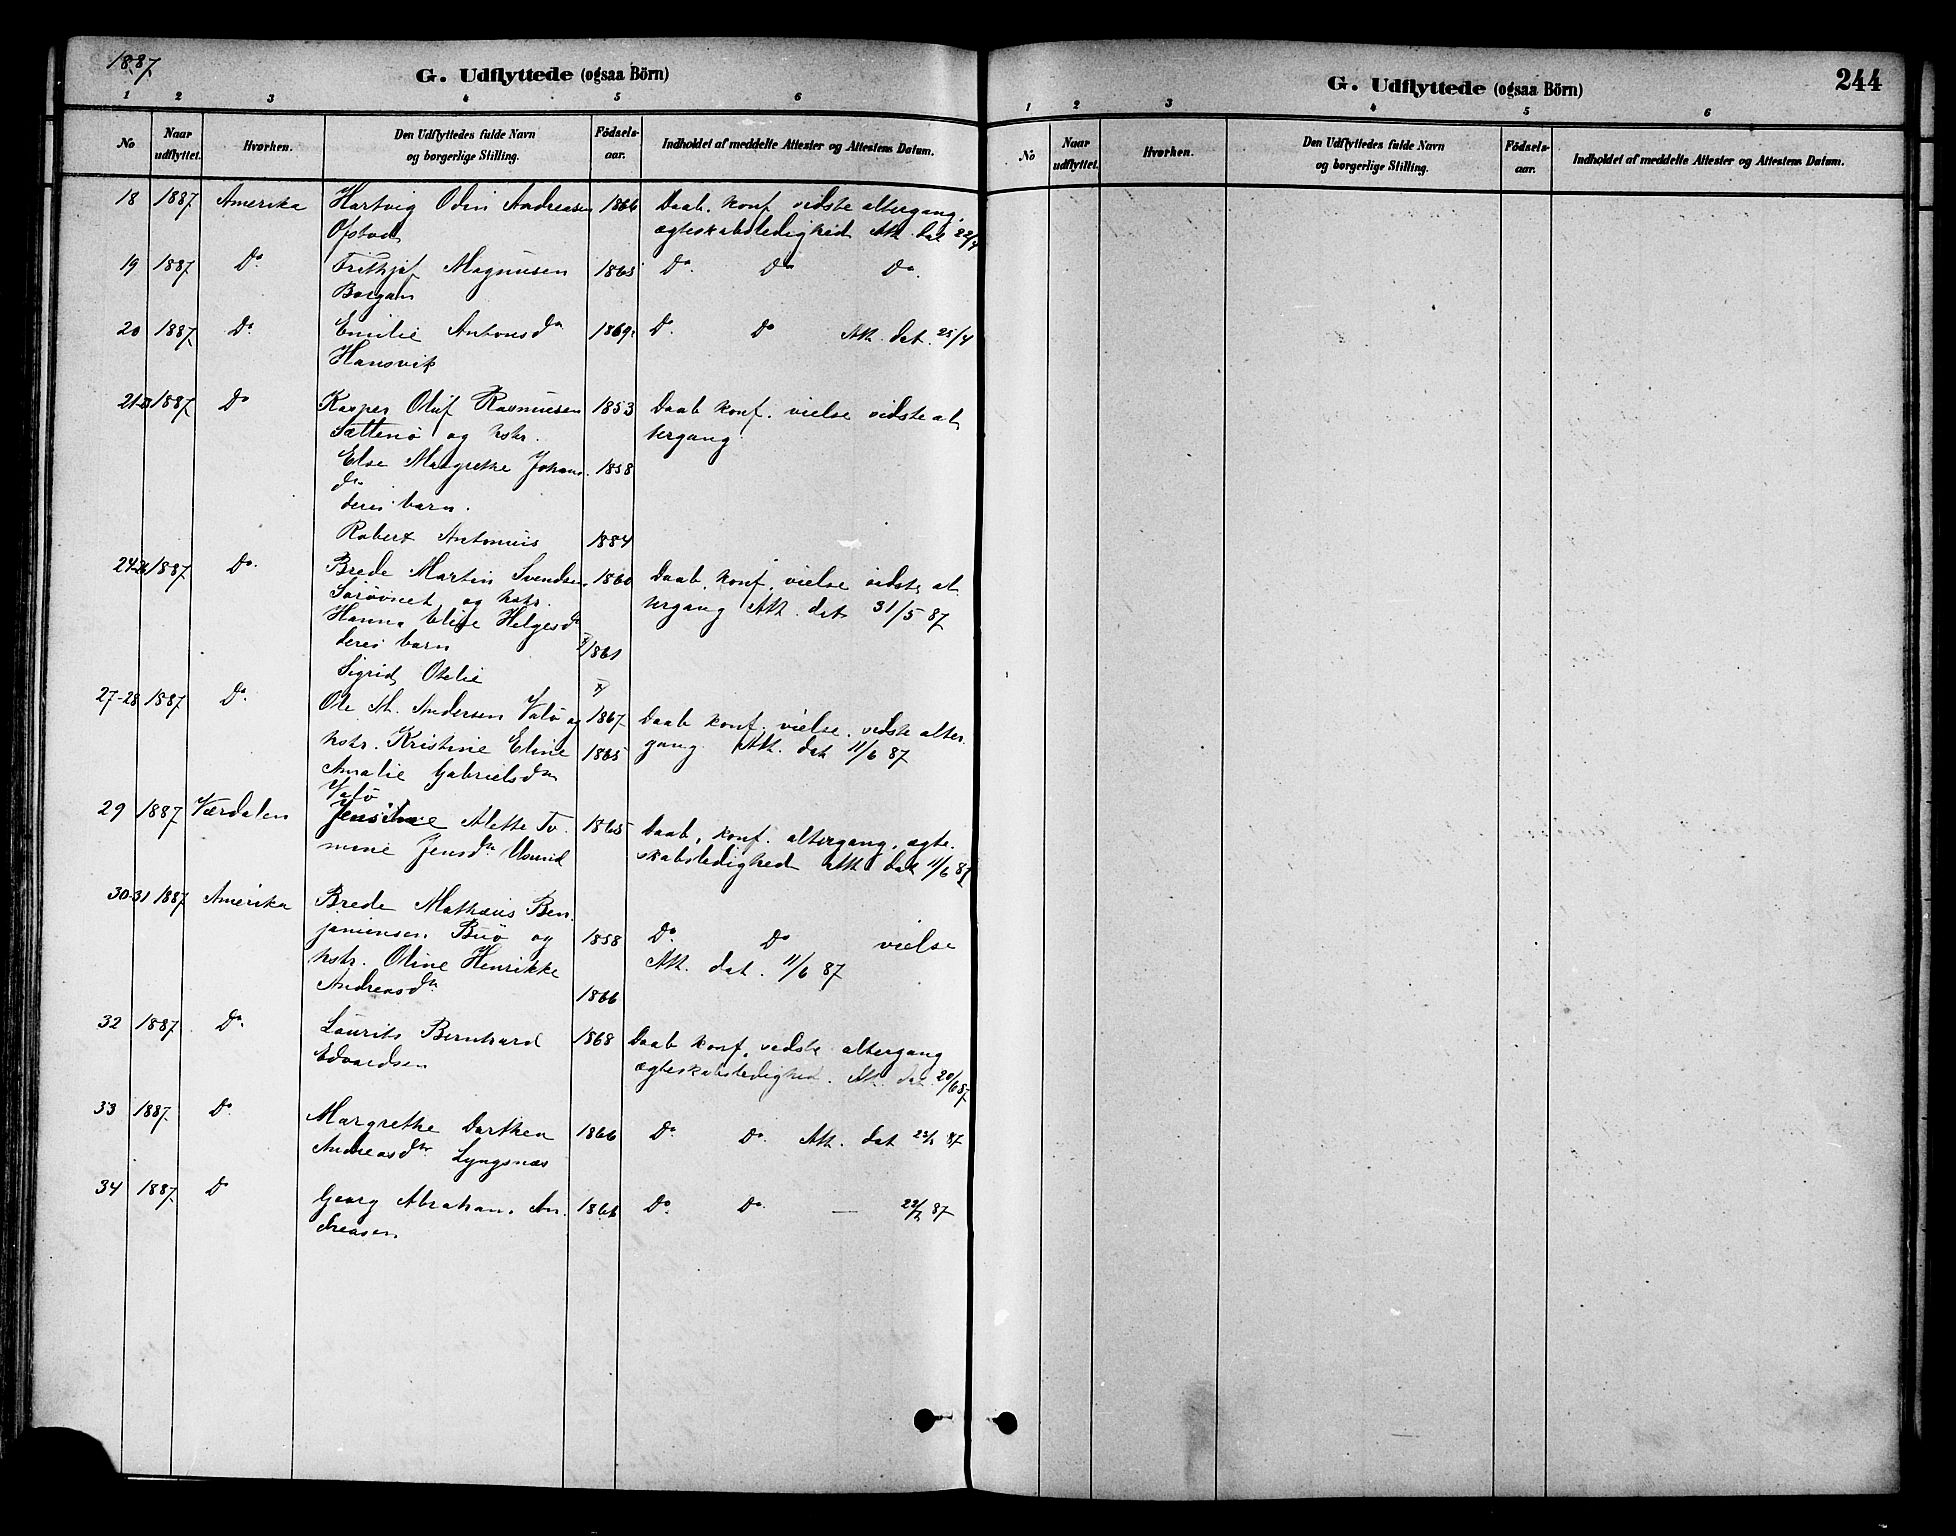 1887
G. Udflyttede (ogsaa Börn)
1 2 3 4 5 6
No
Naar udflyttet.
Hvorhen.
Den Udflyttedes fulde Navn og borgerlige Stilling.
Födsels-aar.
Indholdet af meddelte Attester og Attestens Datum.
18 1887 Amerika Hartvig Odin Andreasen 1866 Daab. konf. vidste altergang,
Ofstad ægteskabsledighed Att. dat 22/4
19 1887 Do. Frithjof Magnusen 1865 Do. Do Do.
Borgan
20 1887 Do. Emilie Antonsdn 1869 Do. Do Att. dat. 25/4
Hansvik
21-23 1887 Do Kasper Oluf Rasmusen 1853 Daab konf. vielse vidste al
Sættenö og hstr. tergang
Else Margrethe Johans 1858
dn
deres barn.
Robert Antonius 1884
24-26 1887 Do. Brede Martin Svendsen 1860 Daab, konf, vielse vidste al
Sørøvnet og hstr. tergang Att. dat 31/5 87
Hanna Elise Helgesdn
deres barn 1861
Sigrid Otelie
27-28 1887 Do. Ole M. Andersen Valø og 1867 Daab konf. vielse. vidste alter.
hstr. Kristine Eline 1865 gang. Att. dat 11/6 87
Amalie Gabrielsdn
Valø
29 1887 Værdalen Jensine Alette To 1865 Daab, konf. altergang, ægte.
mine Jensdn Usund skabsledighed Att dat 11/6 87
30-31 1887 Amerika Brede Mathæus Ben
jaminsen Buö og 1858 Do. Do vielse
hstr. Oline Henrikke Att. dat. 11/6 87
Andreasdn 1866
32 1887 Do. Laurits Bernhard 1868 Daab konf. vidste altergang
Edvardsen ægteskabsledighed. Att. dat. 20/6 87
33 1887. Do. Margrethe Dorthea 1866 Do. Do. Att. dat 87
Andreasdn Lyngsnæs
34 1887. Do Georg Abraham An 1866 Do. Do. — 87
dreasen
G. Udflyttede (ogsaa Börn)
244
1 2 3 4 5 6
No
Naar udflyttet.
Hvorhen.
Den Udflyttedes fulde Navn og borgerlige Stilling.
Födsels-aar.
Indholdet af meddelte Attester og Attestens Datum.